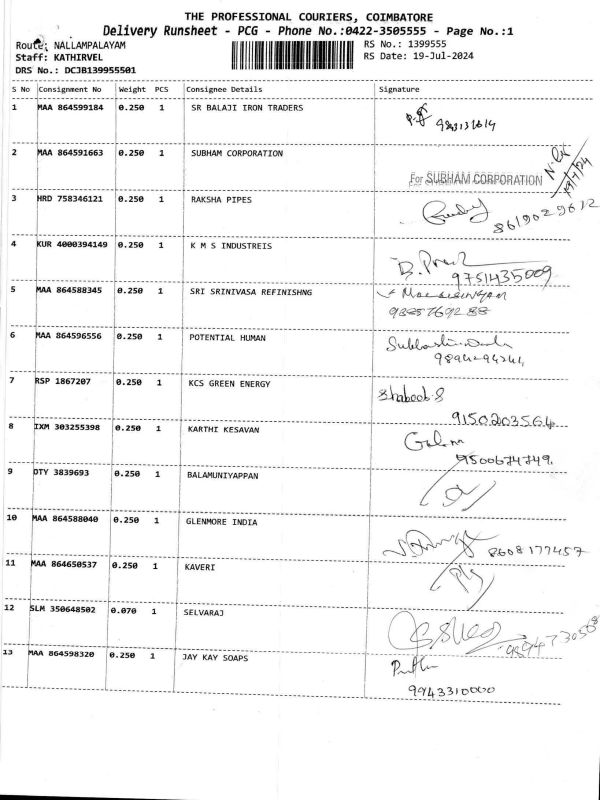 THE PROFESSIONAL COURIERS, COIMBATORE
Delivery Runsheet - PCG - Phone No.:0422-3505555 - Page No.:1
Route: NALLAMPALAYAM RS No.: 1399555
Staff: KATHIRVEL RS Date: 19-Jul-2024
DRS No.: DCJB139955501
S No Consignment No Weight PCS Consignee Details Signature
1 MAA 864599184 0.250 1 SR BALAJI IRON TRADERS
2 MAA 864591663 0.250 1 SUBHAM CORPORATION
For SUBHAM CORPORATION 19/7/24
3 HRD 758346121 0.250 1 RAKSHA PIPES
8619029612
4 KUR 4000394149 0.250 1 K M S INDUSTREIS
9751435009
5 MAA 864588345 0.250 1 SRI SRINIVASA REFINISHNG
6 MAA 864596556 0.250 1 POTENTIAL HUMAN
7 RSP 1867207 0.250 1 KCS GREEN ENERGY
Shabeek.S
9150203564
8 IXM 303255398 0.250 1 KARTHI KESAVAN
9500674749
9 DTY 3839693 0.250 1 BALAMUNIYAPPAN
10 MAA 864588040 0.250 1 GLENMORE INDIA
8608177457
11 MAA 864650537 0.250 1 KAVERI
12 SLM 350648502 0.070 1 SELVARAJ
13 MAA 864598320 0.250 1 JAY KAY SOAPS
9943310000